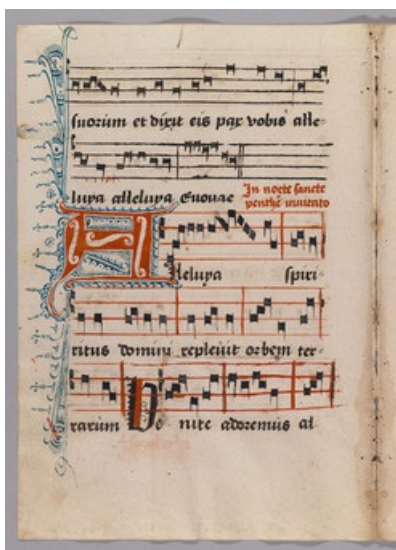 suorum et dixit eis pax vobis alle-
luya alleluya Euouae
In nocte sancte
penthe inuitato
Alleluya spiri-
ritus domini repleuit orbem ter-
rarum Ve nite adoremus al